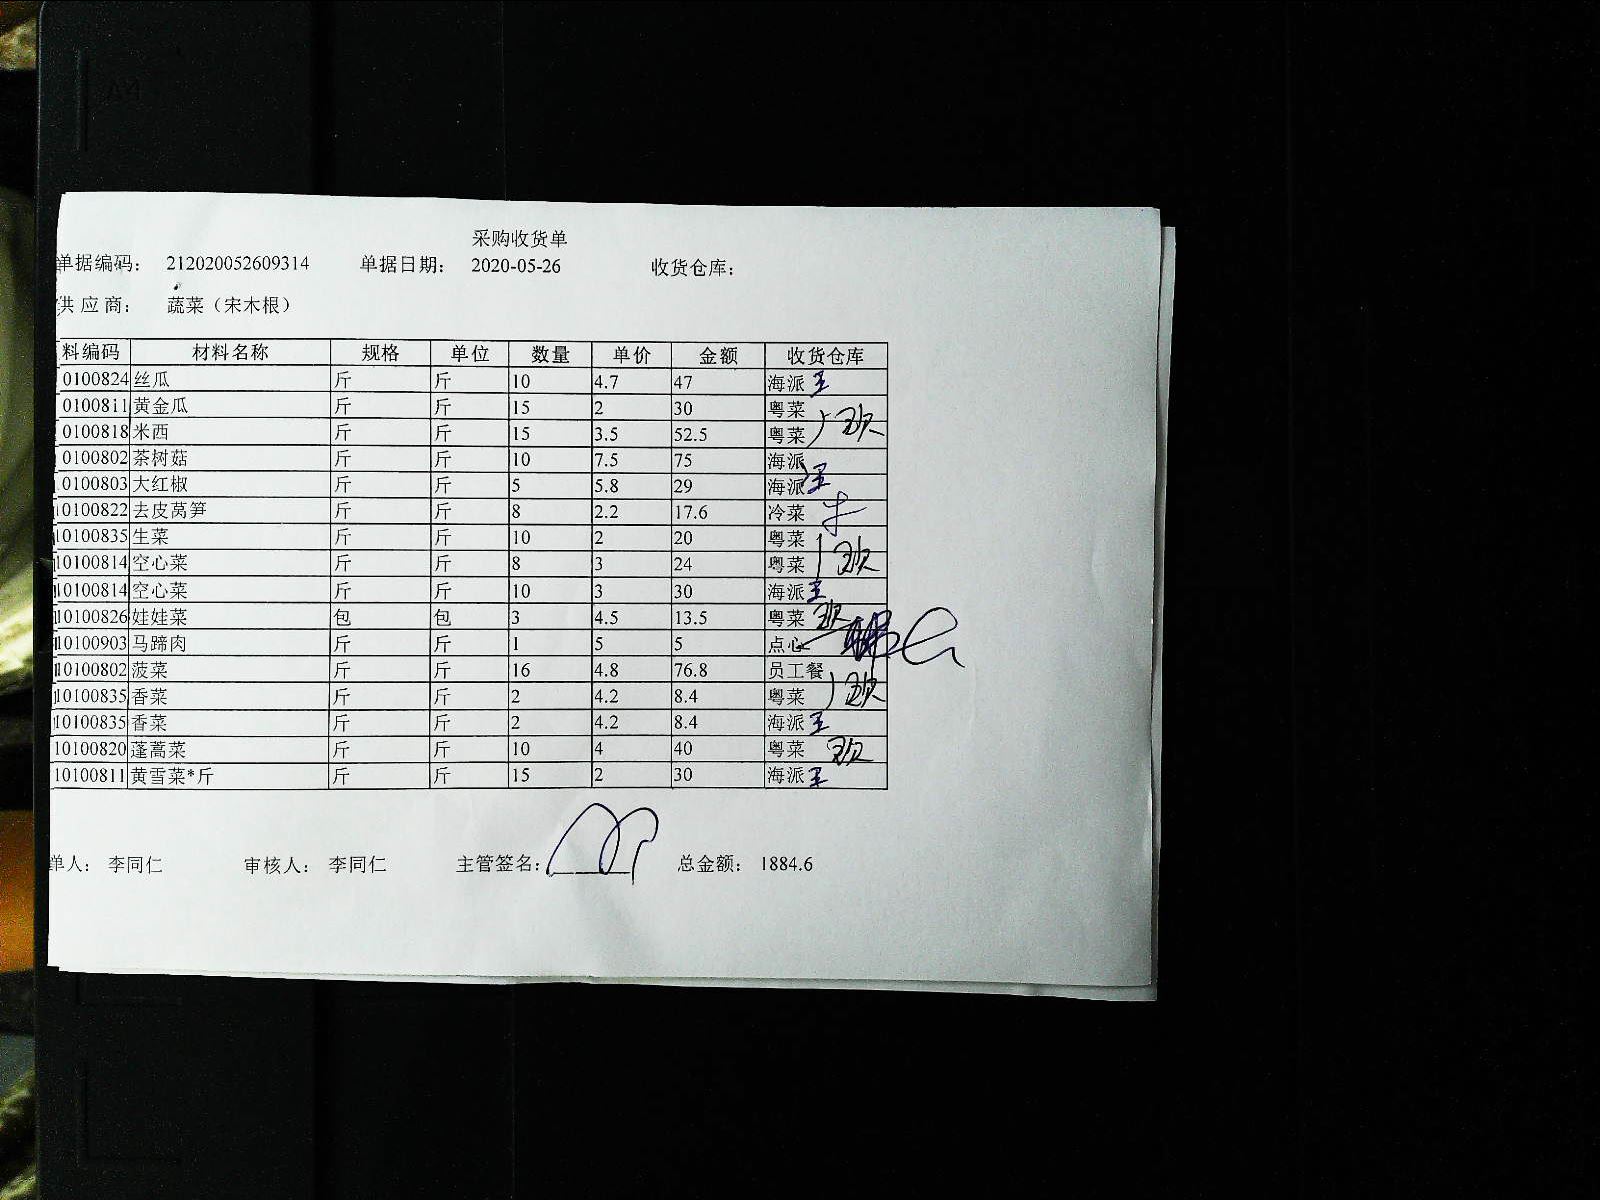 采购收货单
单据编码： 212020052609314 单据日期： 2020-05-26 收货仓库：
供 应 商： 蔬菜（宋木根）
料编码 材料名称 规格 单位 数量 单价 金额 收货仓库
0100824 丝瓜 斤 斤 10 4.7 47 海派 王
0100811 黄金瓜 斤 斤 15 2 30 粤菜
0100818 米西 斤 斤 15 3.5 52.5 粤菜
0100802 茶树菇 斤 斤 10 7.5 75 海派
0100803 大红椒 斤 斤 5 5.8 29 海派 王
0100822 去皮莴笋 斤 斤 8 2.2 17.6 冷菜
10100835 生菜 斤 斤 10 2 20 粤菜
10100814 空心菜 斤 斤 8 3 24 粤菜
10100814 空心菜 斤 斤 10 3 30 海派 王
10100826 娃娃菜 包 包 3 4.5 13.5 粤菜
10100903 马蹄肉 斤 斤 1 5 5 点心
10100802 菠菜 斤 斤 16 4.8 76.8 员工餐
10100835 香菜 斤 斤 2 4.2 8.4 粤菜
10100835 香菜 斤 斤 2 4.2 8.4 海派 王
10100820 蓬蒿菜 斤 斤 10 4 40 粤菜
10100811 黄雪菜*斤 斤 斤 15 2 30 海派 王
单人： 李同仁 审核人： 李同仁 主管签名： 总金额： 1884.6